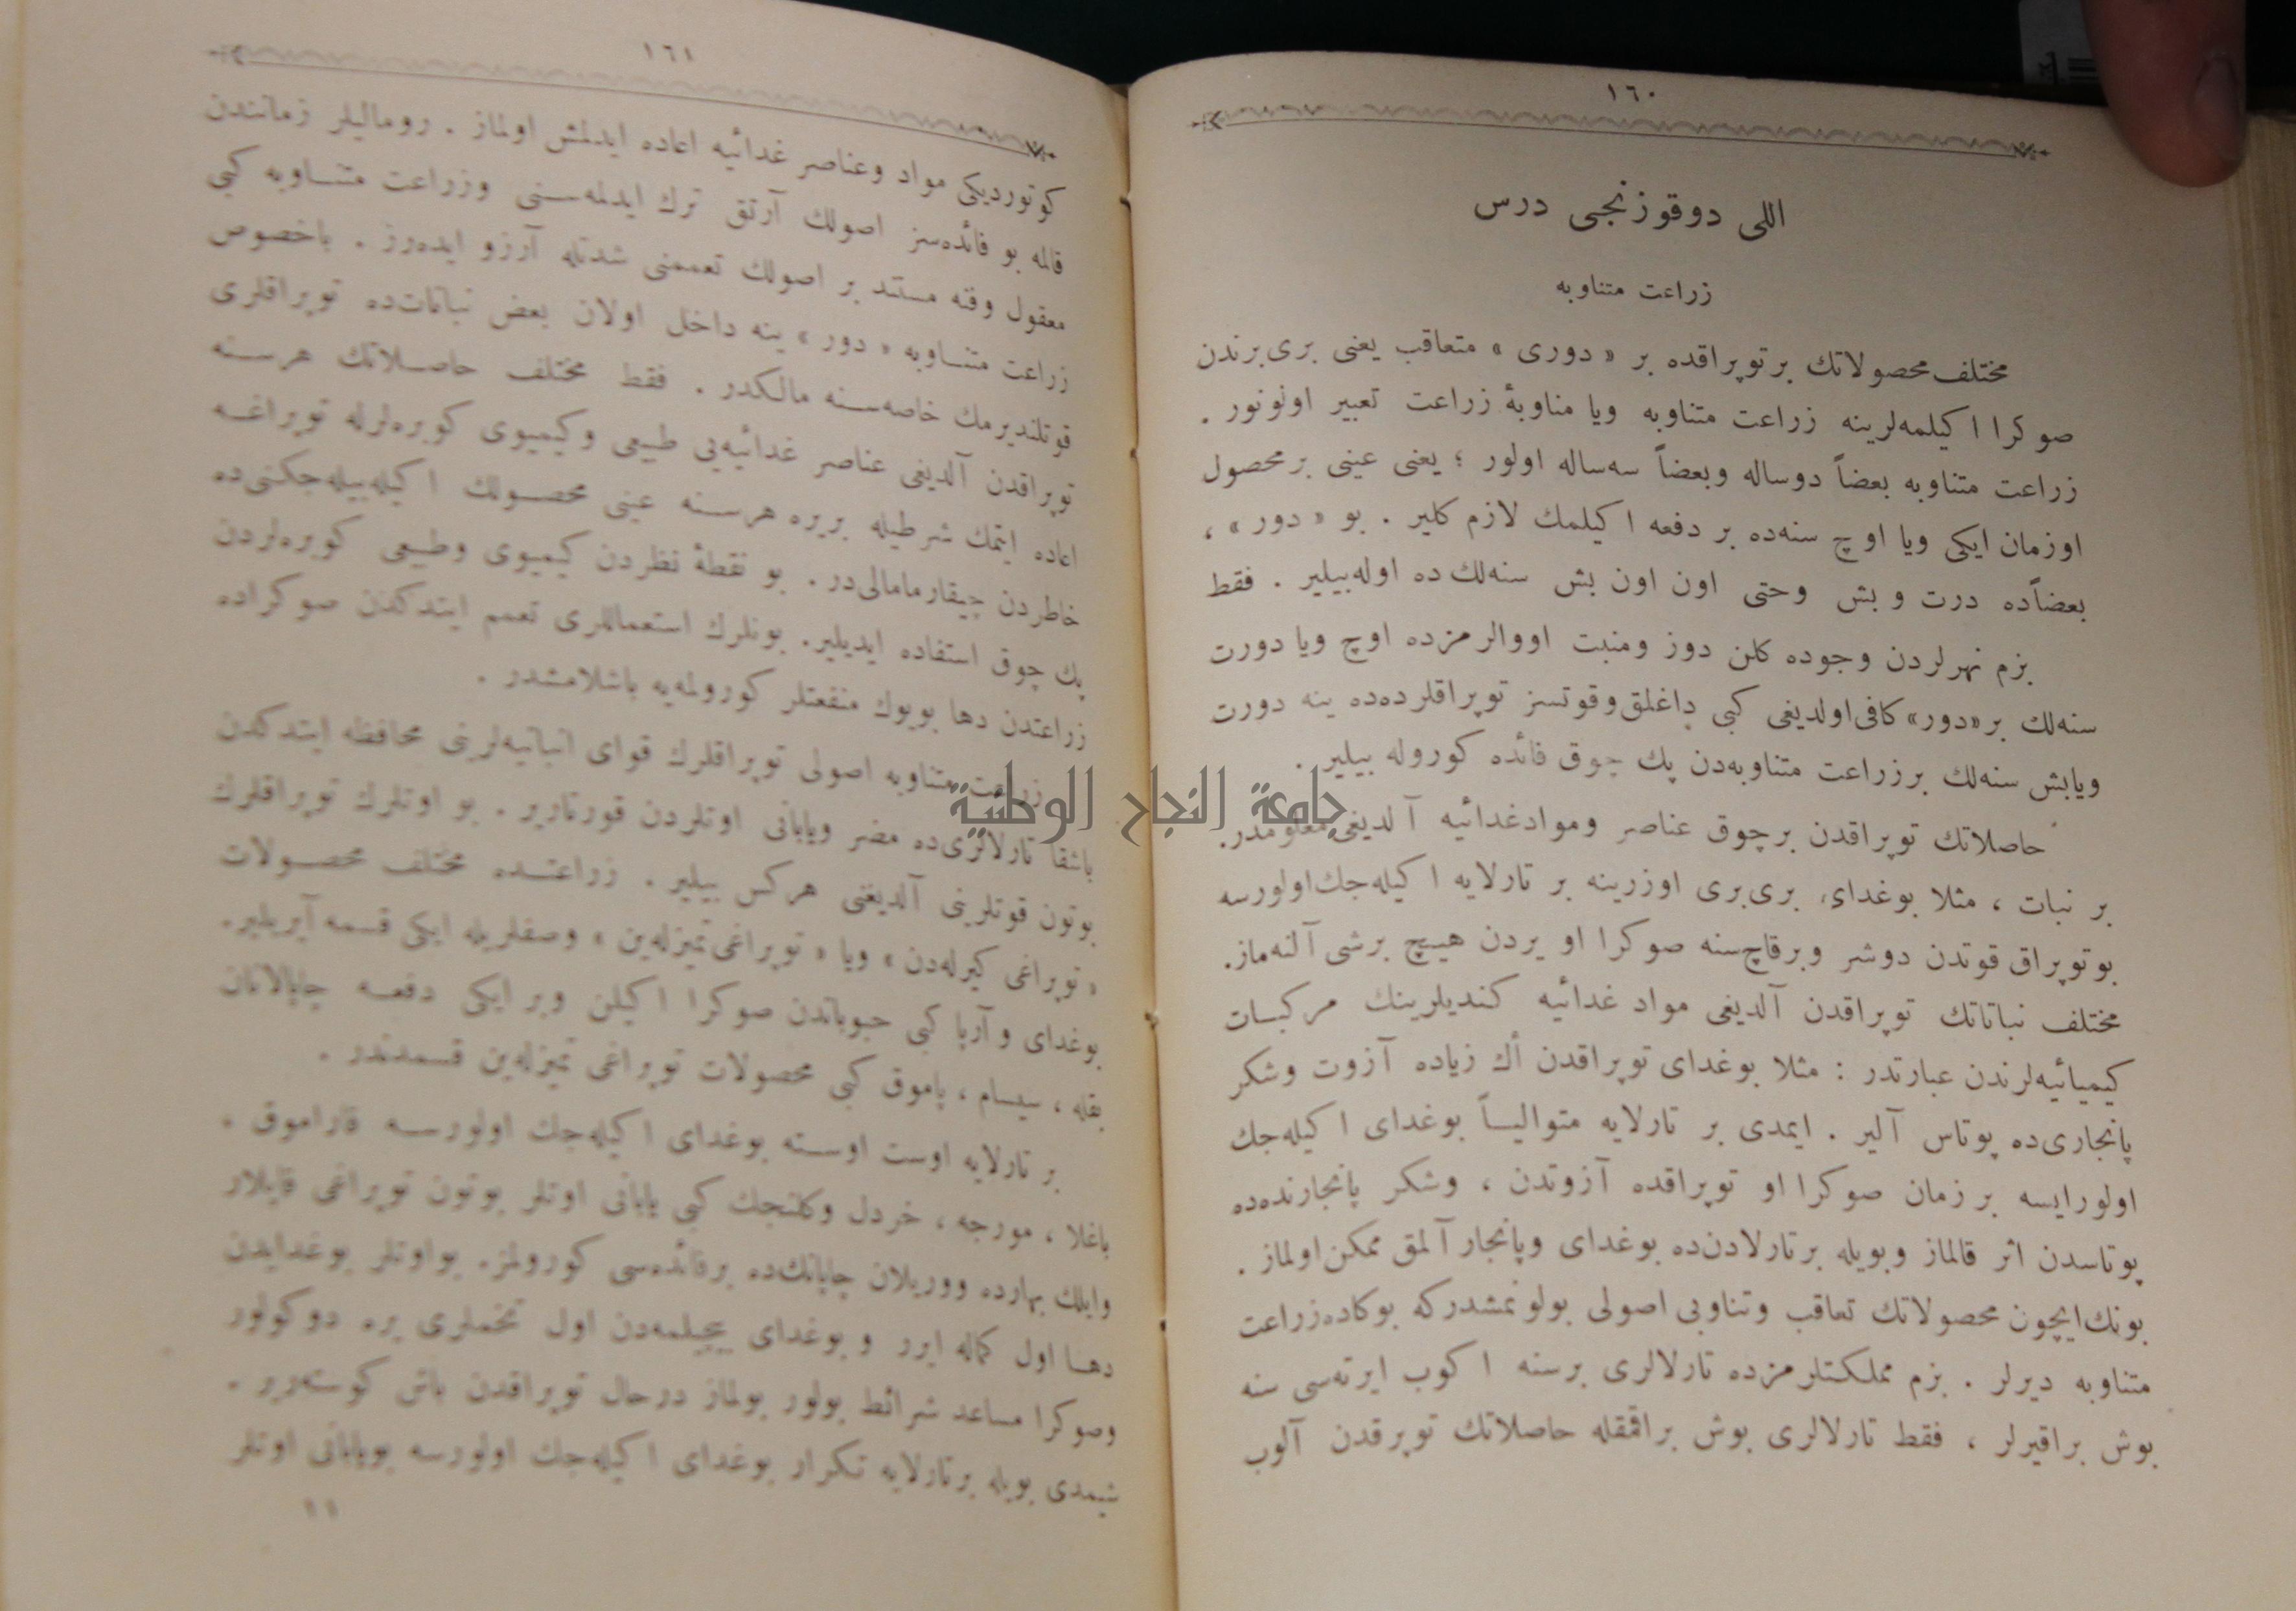 ١٦٠
اللی دوقوزنجی درس
زراعت متناوبه
مختلف محصولاتك برتوپراقده بر « دوری » متعاقب یعنی بری برندن
صوكرا اكیلمه‌لرینه زراعت متناوبه ویا مناوبهٔ زراعت تعبیر اونونور .
زراعت متناوبه بعضاً دوساله وبعضاً سه‌ساله اولور ؛ یعنی عینی برمحصول
اوزمان ایكی ویا اوچ سنه‌ده بر دفعه اكیلمك لازم كلیر . بو « دور » ،
بعضاًده درت و بش وحتی اون اون بش سنه‌لك ده اوله‌بیلیر . فقط
بزم نهرلردن وجوده كلن دوز ومنبت اووالرمزده اوچ ویا دورت
سنه‌لك بر «دور» كافی‌اولدیغی كبی داغلق‌وقوتسز توپراقلرده‌ده ینه دورت
ویابش سنه‌لك برزراعت متناوبه‌دن پك چوق فائده كوروله بیلیر .
حاصلاتك توپراقدن برچوق عناصر وموادغدائیه آلدیغی معلومدر.
بر نبات ، مثلا بوغدای، بری‌بری اوزرینه بر تارلایه اكیله‌جك‌اولورسه
بوتوپراق قوتدن دوشر وبرقاچ‌سنه صوكرا او یردن هیچ برشی آلنه‌ماز.
مختلف نباتاتك توپراقدن آلدیغی مواد غدائیه كندیلرینك مركبات
كیمیائیه‌لرندن عبارتدر : مثلا بوغدای توپراقدن اك زیاده آزوت وشكر
پانجاری‌ده پوتاس آلیر . ایمدی بر تارلایه متوالیاً بوغدای اكیله‌جك
اولورایسه بر زمان صوكرا او توپراقده آزوتدن ، وشكر پانجارنده‌ده
پوتاسدن اثر قالماز وبویله برتارلادن‌ده بوغدای وپانجار آلمق ممكن‌اولماز .
بونك‌ایچون محصولاتك تعاقب وتناوبی اصولی بولونمشدركه بوكاده‌زراعت
متناوبه دیرلر . بزم مملكتلرمزده تارلالری برسنه اكوب ایرته‌سی سنه
بوش براقیرلر ، فقط تارلالری بوش براقمقله حاصلاتك توپرقدن آلوب
١٦١
كوتوردیكی مواد وعناصر غدائیه اعاده ایدلمش اولماز . رومالیلر زمانندن
قالمه بو فائده‌سز اصولك آرتق ترك ایدلمه‌سنی وزراعت متناوبه كبی
معقول وفنه مستند بر اصولك تعممنی شدتله آرزو ایده‌رز . باخصوص
زراعت متناوبه « دور » ینه داخل اولان بعض نباتات‌ده توپراقلری
قوتلندیرمك خاصه‌سنه مالكدر . فقط مختلف حاصلاتك هرسنه
توپراقدن آلدیغی عناصر غدائیه‌یی طبیعی وكیمیوی كوبره‌لرله توپراغه
اعاده ایتمك شرطیله بریره هرسنه عینی محصولك اكیله‌بیله‌جكنی‌ده
خاطردن چیقارمامالی‌در . بو نقطهٔ نظردن كیمیوی وطبیعی كوبره‌لردن
پك چوق استفاده ایدیلیر. بونلرك استعماللری تعمم ایتدكدن صوكراده
زراعتدن دها بویوك منفعتلر كورولمه‌یه باشلامشدر .
زراعت متناوبه اصولی توپراقلرك قوای انباتیه‌لرینی محافظه ایتدكدن
باشقا تارلالری‌ده مضر ویابانی اوتلردن قورتاریر . بو اوتلرك توپراقلرك
بوتون قوتلرینی آلدیغنی هركس بیلیر . زراعتده مختلف محصولات
« توپراغی كیرله‌دن » ویا « توپراغی تمیزله‌ین » وصفلریله ایكی قسمه آیریلیر.
بوغدای وآرپا كبی حبوباتدن صوكرا اكیلن وبر ایكی دفعه چاپالانان
بقله ، سیسام ، پاموق كبی محصولات توپراغی تمیزله‌ین قسمدندر .
بر تارلایه اوست اوسته بوغدای اكیله‌جك اولورسه قاراموق ،
باغلا ، مورجه ، خردل وكلنجك كبی یابانی اوتلر بوتون توپراغی قاپلار
وایلك بهارده ووریلان چاپانك‌ده برفائده‌سی كورولمز. بواوتلر بوغدایدن
دها اول كماله ایرر و بوغدای بیچیلمه‌دن اول تخملری یره دوكولور
وصوكرا مساعد شرائط بولور بولماز درحال توپراقدن باش كوستریر .
شیمدی بویله برتارلایه تكرار بوغدای اكیله‌جك اولورسه بویابانی اوتلر
١١
جامعة النجاح الوطنية